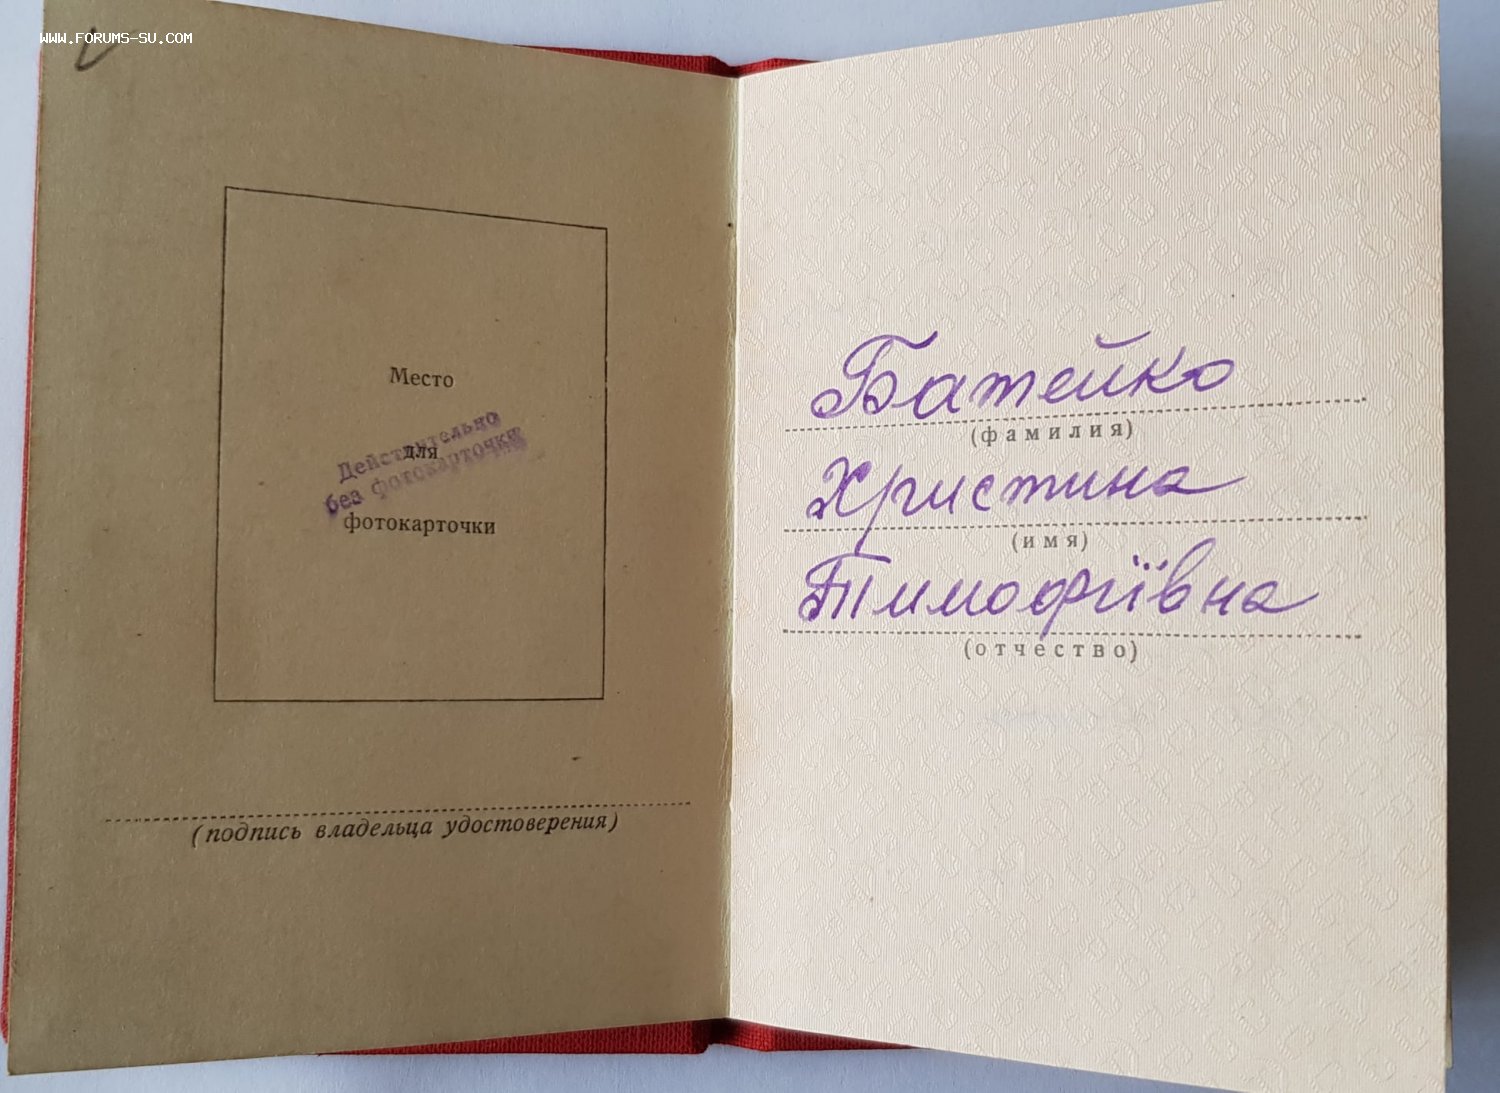 WWW.FORUMS-SU.COM
Место
для
фотокарточки
Действительно
без фотокарточки
(подпись владельца удостоверения)
Батейко
(фамилия)
Христина
(имя)
Тимофіївна
(отчество)